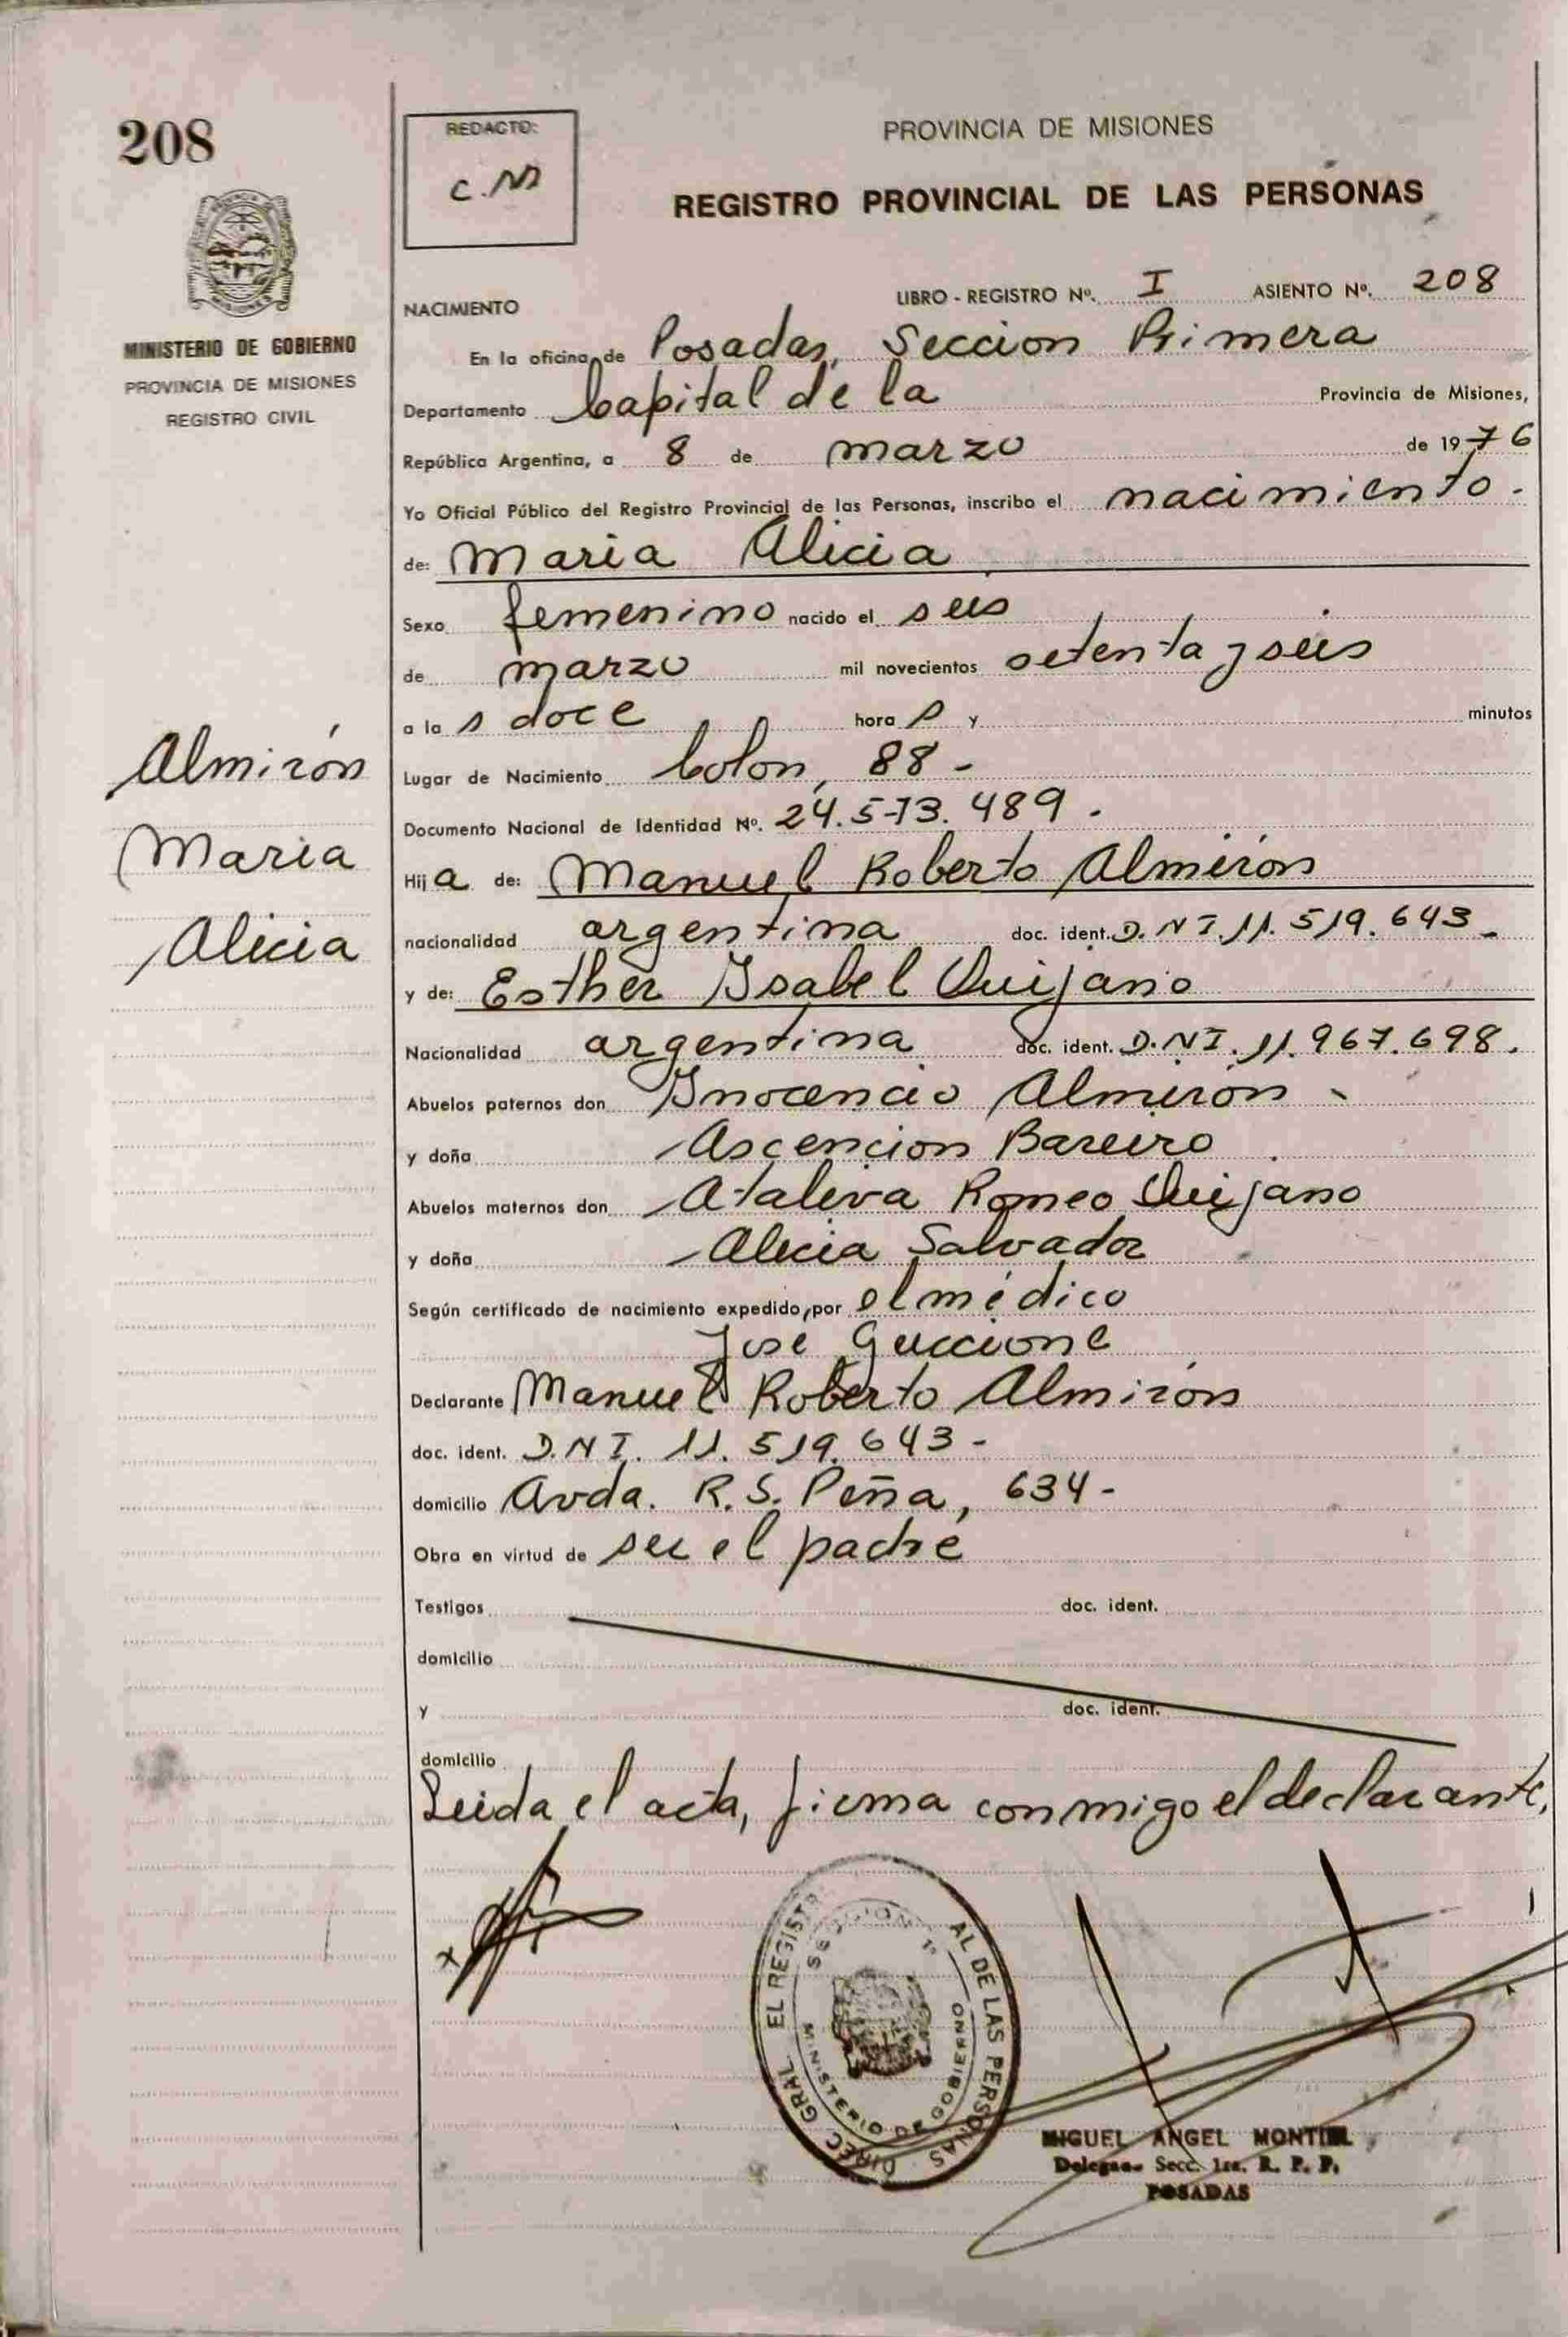 208
REDACTO:
C.M
PROVINCIA DE MISIONES
REGISTRO PROVINCIAL DE LAS PERSONAS
MINISTERIO DE GOBIERNO
PROVINCIA DE MISIONES
REGISTRO CIVIL
NACIMIENTO LIBRO - REGISTRO Nº. I ASIENTO Nº. 208
En la oficina de Posadas, Seccion Primera
Departamento Capital de la Provincia de Misiones,
República Argentina, a 8 de marzo de 1976
Yo Oficial Público del Registro Provincial de las Personas, inscribo el nacimiento.
de: Maria Alicia
Sexo femenino nacido el seis
de marzo mil novecientos setenta y seis
a las doce horas y minutos
Almirón
Maria
Alicia
Lugar de Nacimiento Colon, 88 -
Documento Nacional de Identidad Nº. 24.573.489.
Hija de: Manuel Roberto Almirón
nacionalidad argentina doc. ident. D.N.I. 11.519.643-
y de: Esther Ysabel Quijano
Nacionalidad argentina doc. ident. D.N.I. 11.967.698.
Abuelos paternos don Ynocencio Almirón
y doña Ascencion Bareiro
Abuelos maternos don Ataliva Romeo Quijano
y doña Alicia Salvador
Según certificado de nacimiento expedido, por el médico
José Guccione
Declarante Manuel Roberto Almirón
doc. ident. D.N.I. 11.519.643-
domicilio Avda. R.S. Peña, 634-
Obra en virtud de ser el padre
Testigos doc. ident.
domicilio
y doc. ident.
domicilio
Leida el acta, firma conmigo el declarante,
DIREC GRAL EL REGISTR AL DE LAS PERSONAS
SECCION 1ª
MINISTERIO DE GOBIERNO
MIGUEL ANGEL MONTIEL
Secc. 1ra. R. P. P.
POSADAS